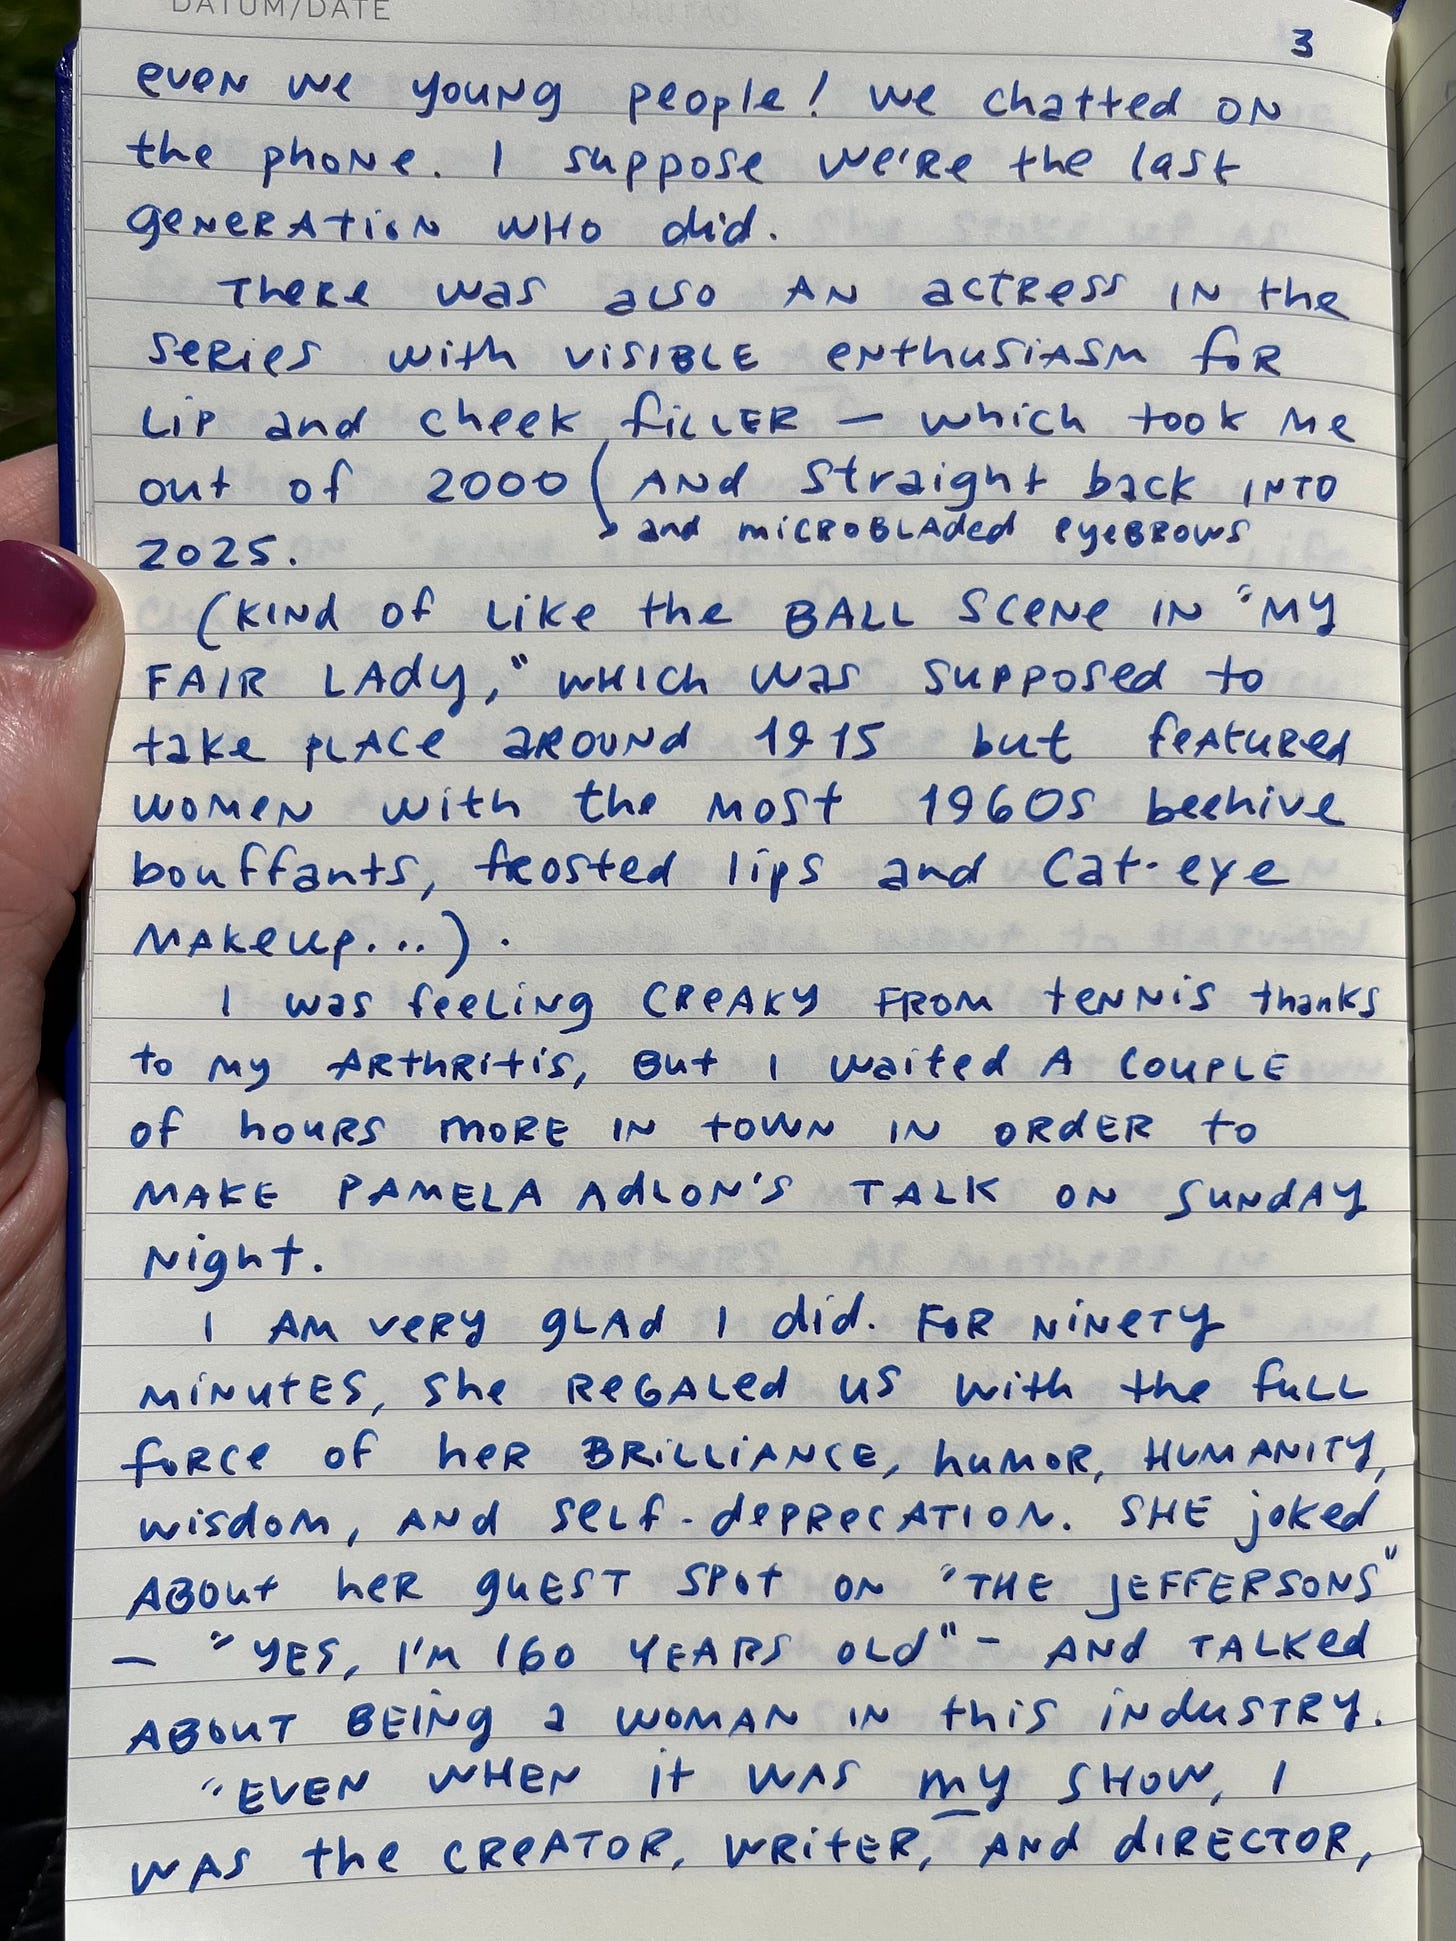 DATUM/DATE
3
even we young people! We chatted on
the phone. I suppose we're the last
generation who did.
There was also an actress in the
series with visible enthusiasm for
lip and cheek filler — which took me
out of 2000 ( and straight back into
and microbladed eyebrows
2025.
(Kind of like the ball scene in "My
Fair Lady," which was supposed to
take place around 1915 but featured
women with the most 1960s beehive
bouffants, frosted lips and cat-eye
makeup...).
I was feeling creaky from tennis thanks
to my arthritis, but I waited a couple
of hours more in town in order to
make Pamela Adlon's talk on Sunday
night.
I am very glad I did. For ninety
minutes, she regaled us with the full
force of her brilliance, humor, humanity,
wisdom, and self-deprecation. She joked
about her guest spot on "The Jeffersons"
— "Yes, I'm 160 years old" – and talked
about being a woman in this industry.
"Even when it was my show, I
was the creator, writer, and director,